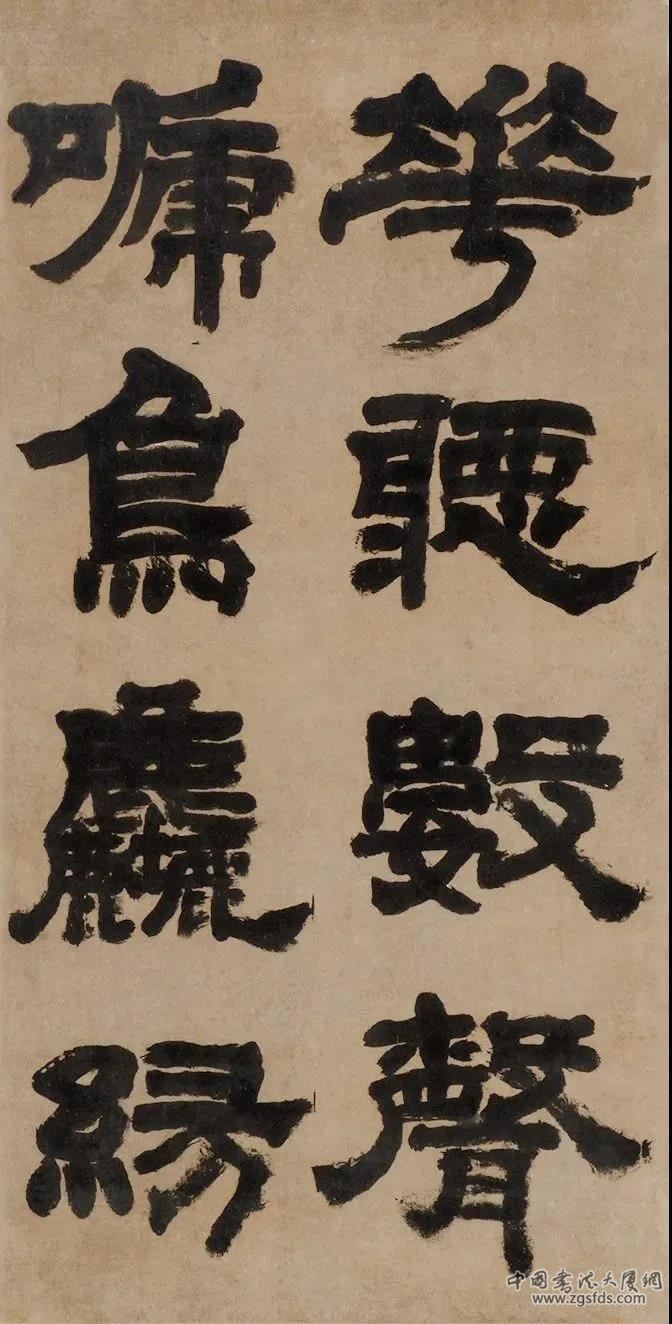 華聽數聲
嗁鳥麤緣
中國書法大厦網
www.zgsfds.com